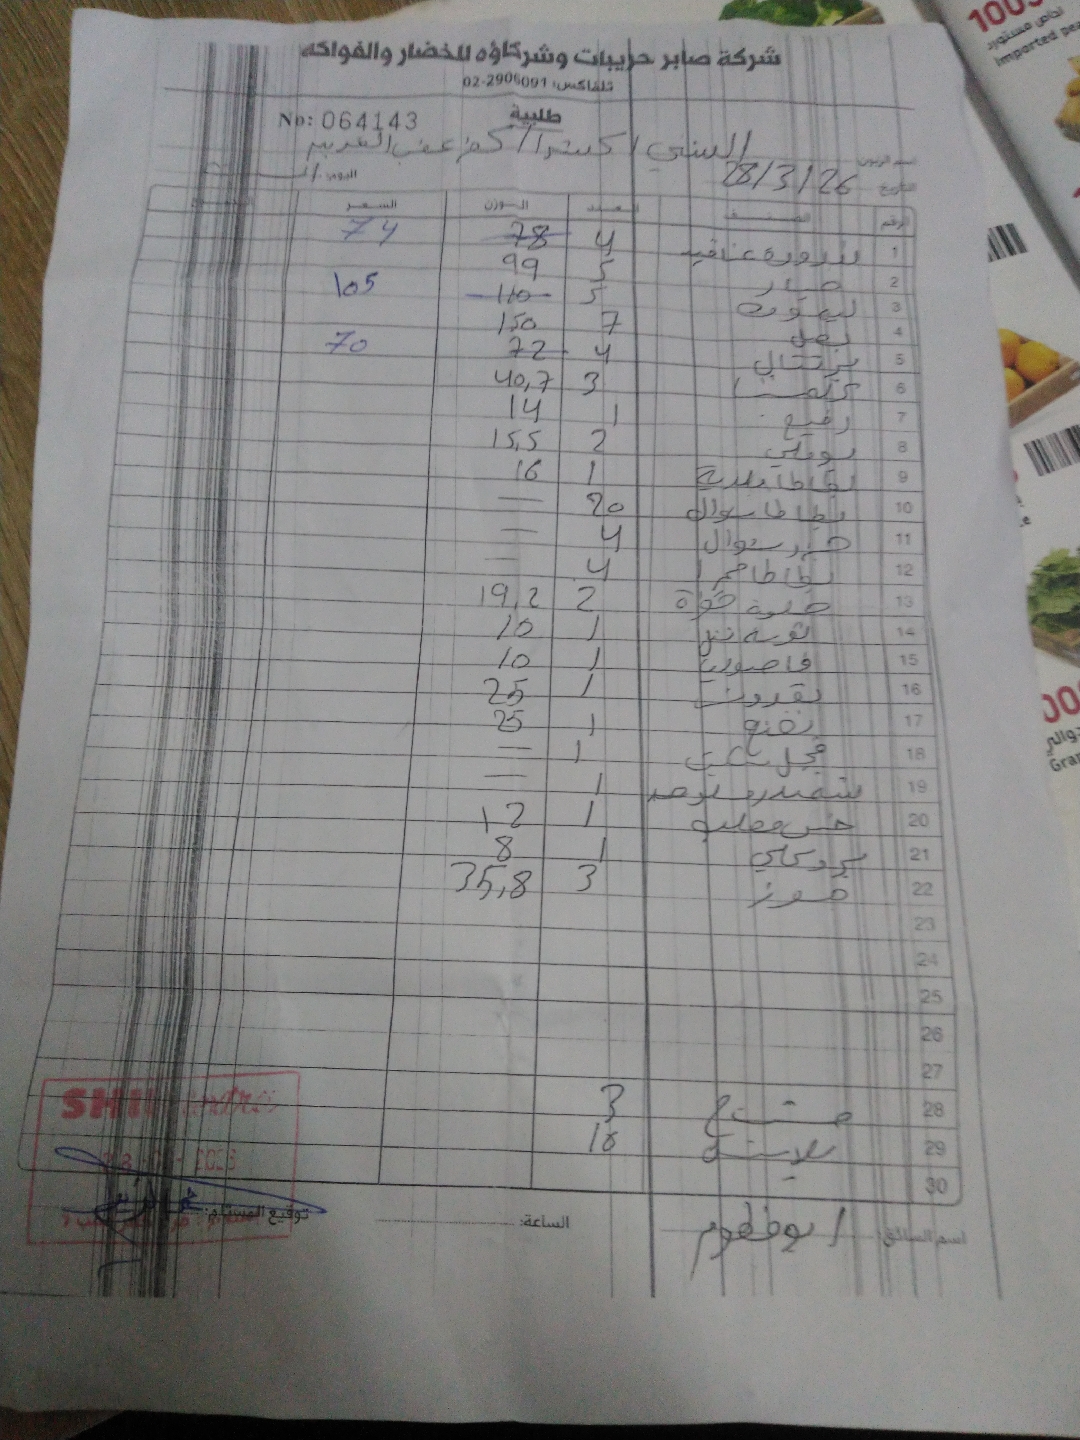 شركة صابر حريبات وشركاؤه للخضار والفواكه
تلفاكس: 02-2906091
طلبية
No: 064143
اسم الزبون
السني / كسترا / كفر عقب القديم
التاريخ 28/3/26 اليوم:
الرقم الصنف العدد الوزن السعر
1 بندورة عناقيد 4 78 74
2 خيار 5 99
3 ليمون 5 110 105
4 بصل 7 150
5 برتقال 4 72 70
6 3 40,7
7 1 14
8 بوملي 2 15,5
9 1 16
10 بطاطا شوال 20 —
11 جزر شوال 4 —
12 بطاطا حمرا 4 —
13 2 19,2
14 1 10
15 فاصوليا 1 10
16 بقدونس 1 25
17 نعنع 1 25
18 فجل 1 —
19 شمندر 1 —
20 خس 1 12
21 بروكلي 1 8
22 موز 3 35,8
23
24
25
26
27
28 3
29 18
30
اسم السائق:
الساعة:
توقيع المستلم: